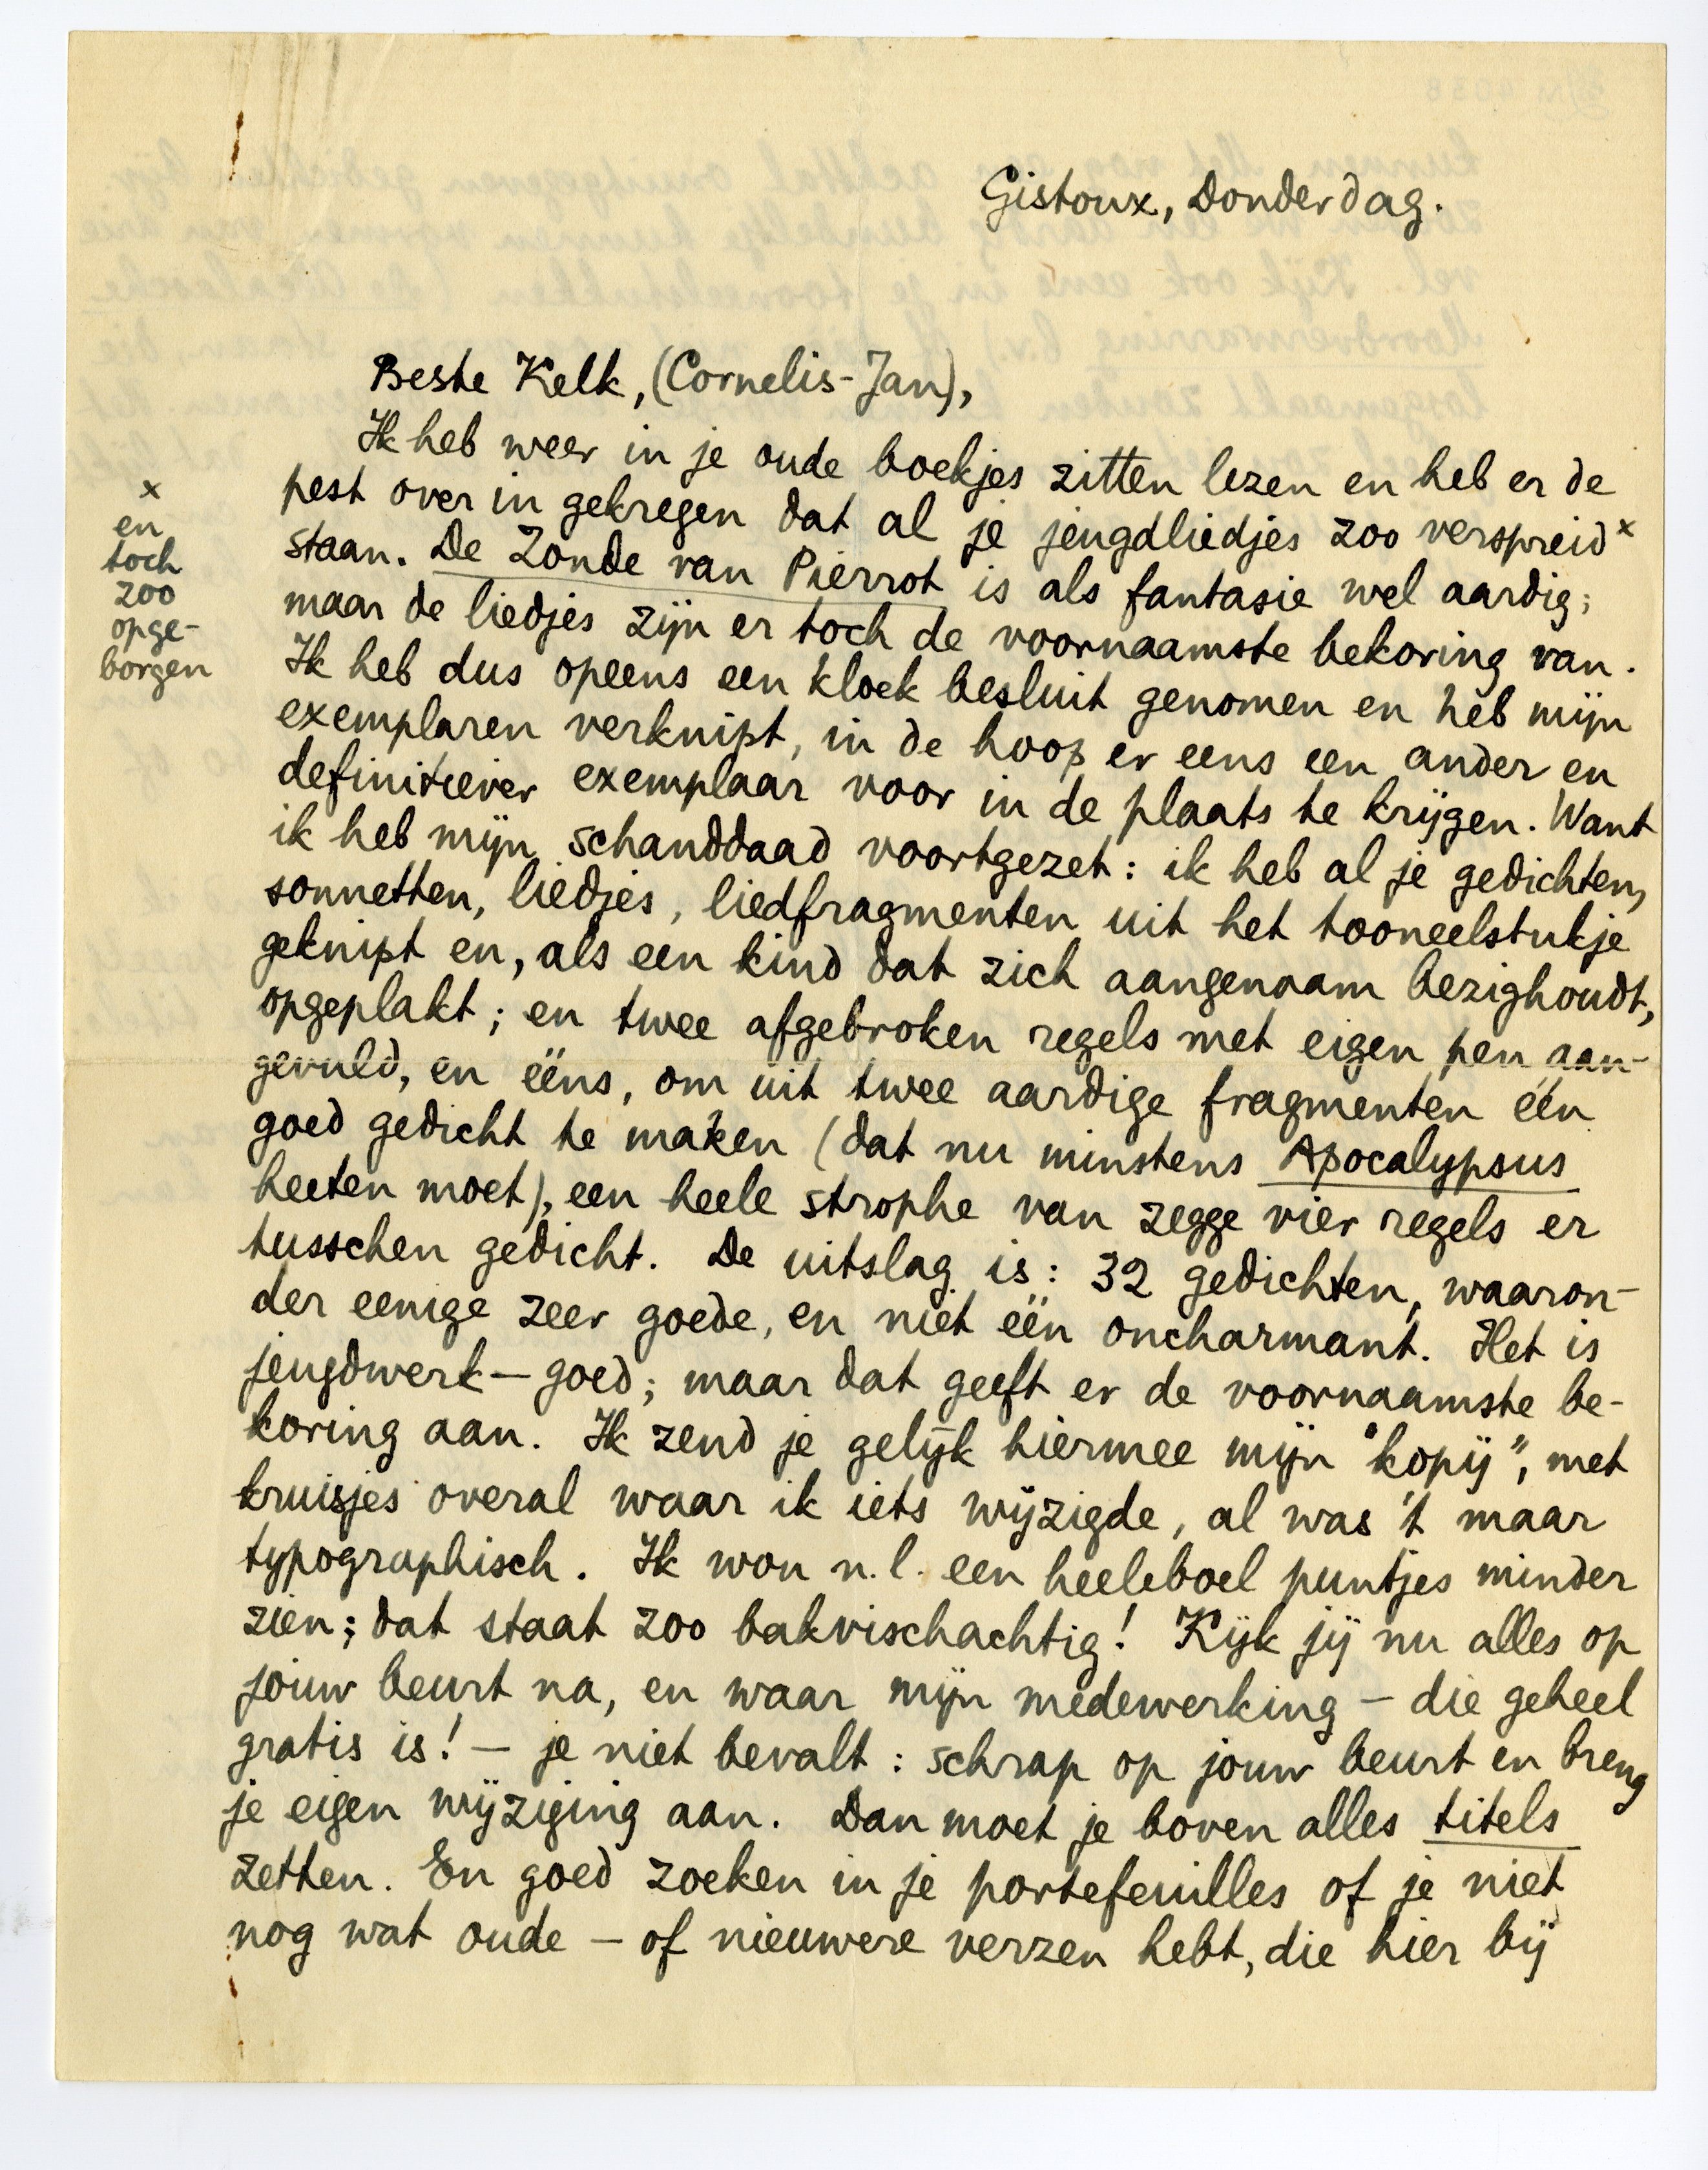 Gistoux, Donderdag.
Beste Kelk, (Cornelis-Jan),
Ik heb weer in je oude boekjes zitten lezen en heb er de
pest over in gekregen dat al je jeugdliedjes zoo verspreid x
staan. De Zonde van Pierrot is als fantasie wel aardig;
maar de liedjes zijn er toch de voornaamste bekoring van.
Ik heb dus opeens een kloek besluit genomen en heb mijn
exemplaren verknipt, in de hoop er eens een ander en
definitiever exemplaar voor in de plaats te krijgen. Want
ik heb mijn schanddaad voortgezet: ik heb al je gedichten,
sonnetten, liedjes, liedfragmenten uit het tooneelstukje
geknipt en, als een kind dat zich aangenaam bezighoudt,
opgeplakt; en twee afgebroken regels met eigen pen aan-
gevuld, en ééns, om uit twee aardige fragmenten één
goed gedicht te maken (dat nu minstens Apocalypsus
heeten moet), een heele strophe van zegge vier regels er
tusschen gedicht. De uitslag is: 32 gedichten, waaron-
der eenige zeer goede, en niet één oncharmant. Het is
jeugdwerk — goed; maar dat geeft er de voornaamste be-
koring aan. Ik zend je gelijk hiermee mijn "kopij", met
kruisjes overal waar ik iets wijzigde, al was 't maar
typographisch. Ik wou n.l. een heeleboel puntjes minder
zien; dat staat zoo bakvischachtig! Kijk jij nu alles op
jouw beurt na, en waar mijn medewerking — die geheel
gratis is! — je niet bevalt: schrap op jouw beurt en breng
je eigen wijziging aan. Dan moet je boven alles titels
zetten. En goed zoeken in je portefeuilles of je niet
nog wat oude — of nieuwere verzen hebt, die hier bij
x
en
toch
zoo
opge-
borgen